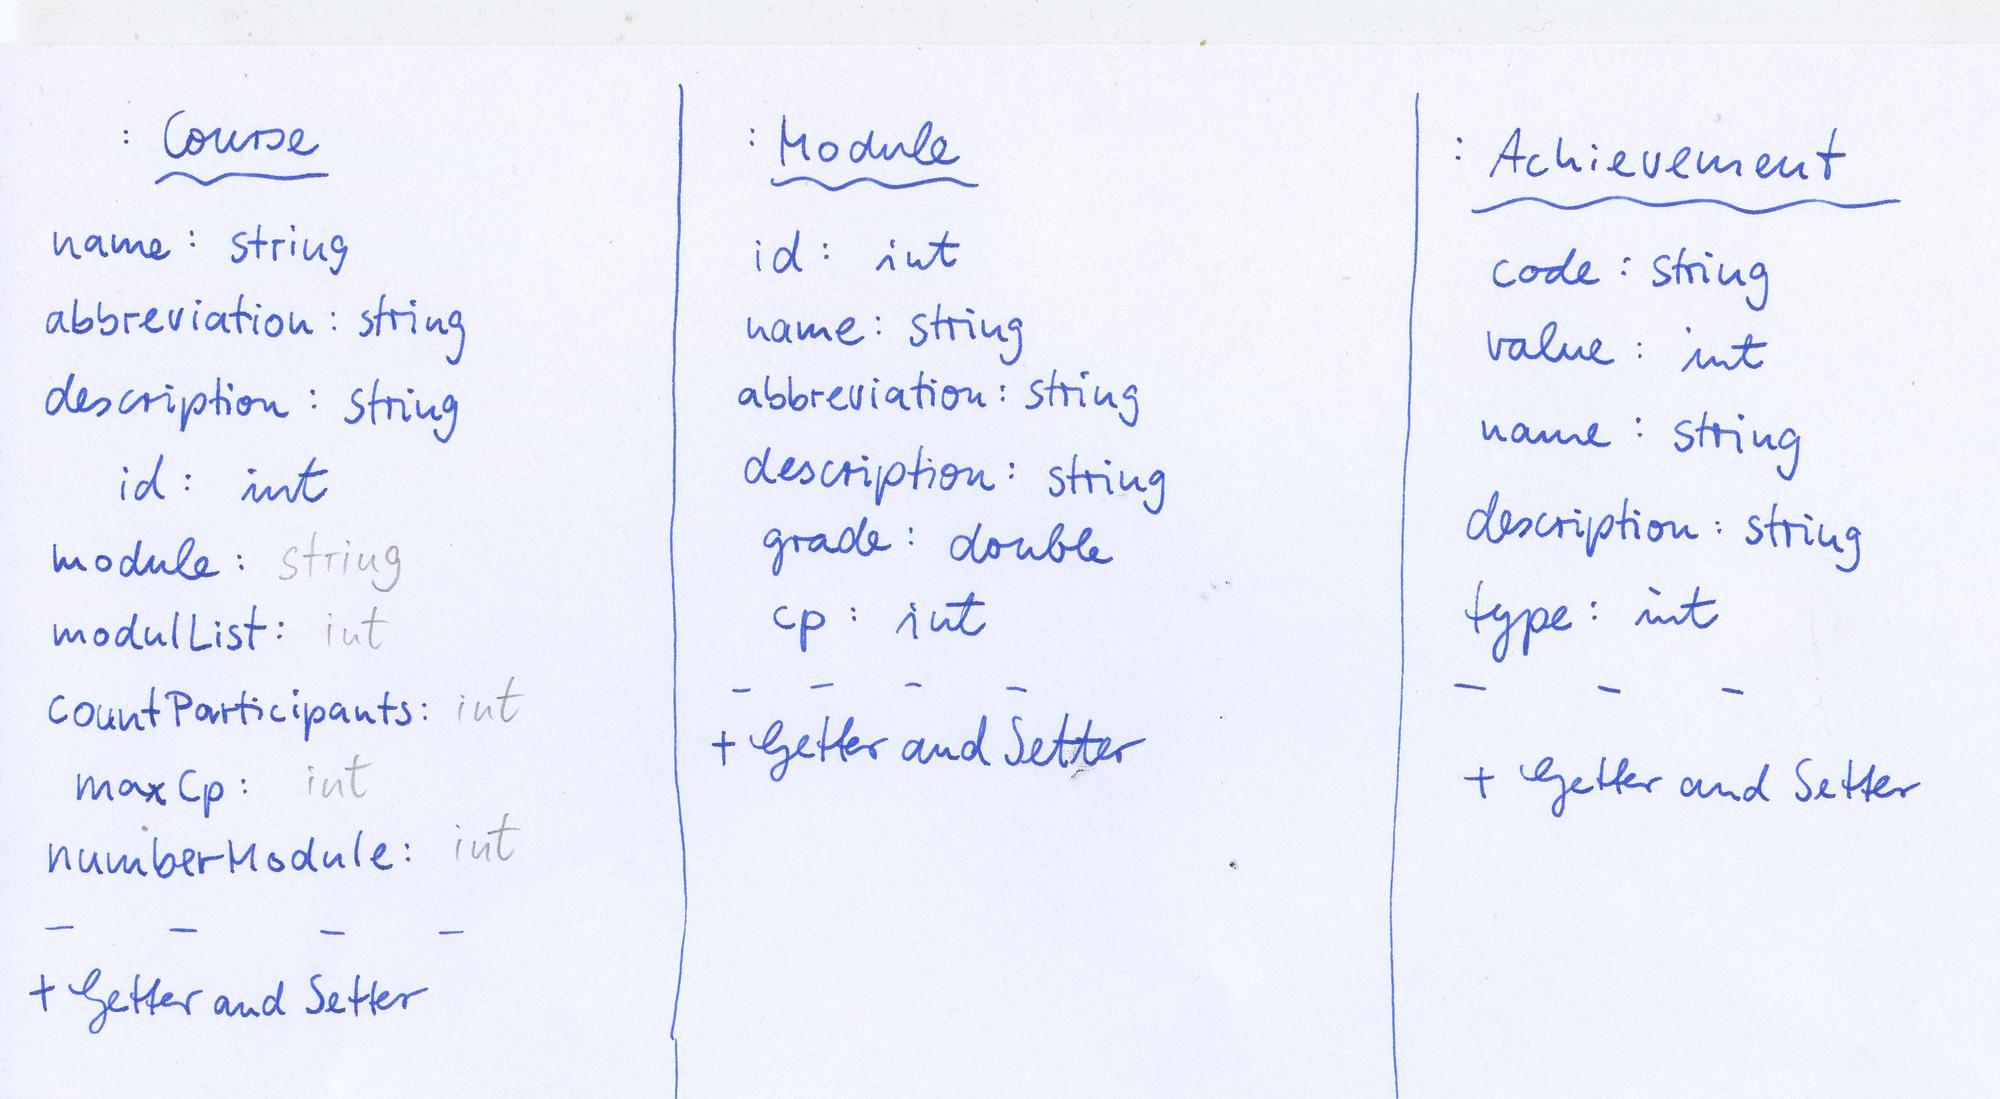 : Course
name: string
abbreviation: string
description: string
id: int
module: string
modulList: int
countParticipants: int
maxCp: int
numberModule: int
- - - -
+ Getter and Setter
: Module
id: int
name: string
abbreviation: string
description: string
grade: double
cp: int
- - - -
+ Getter and Setter
: Achievement
code: string
value: int
name: string
description: string
type: int
- - -
+ Getter and Setter